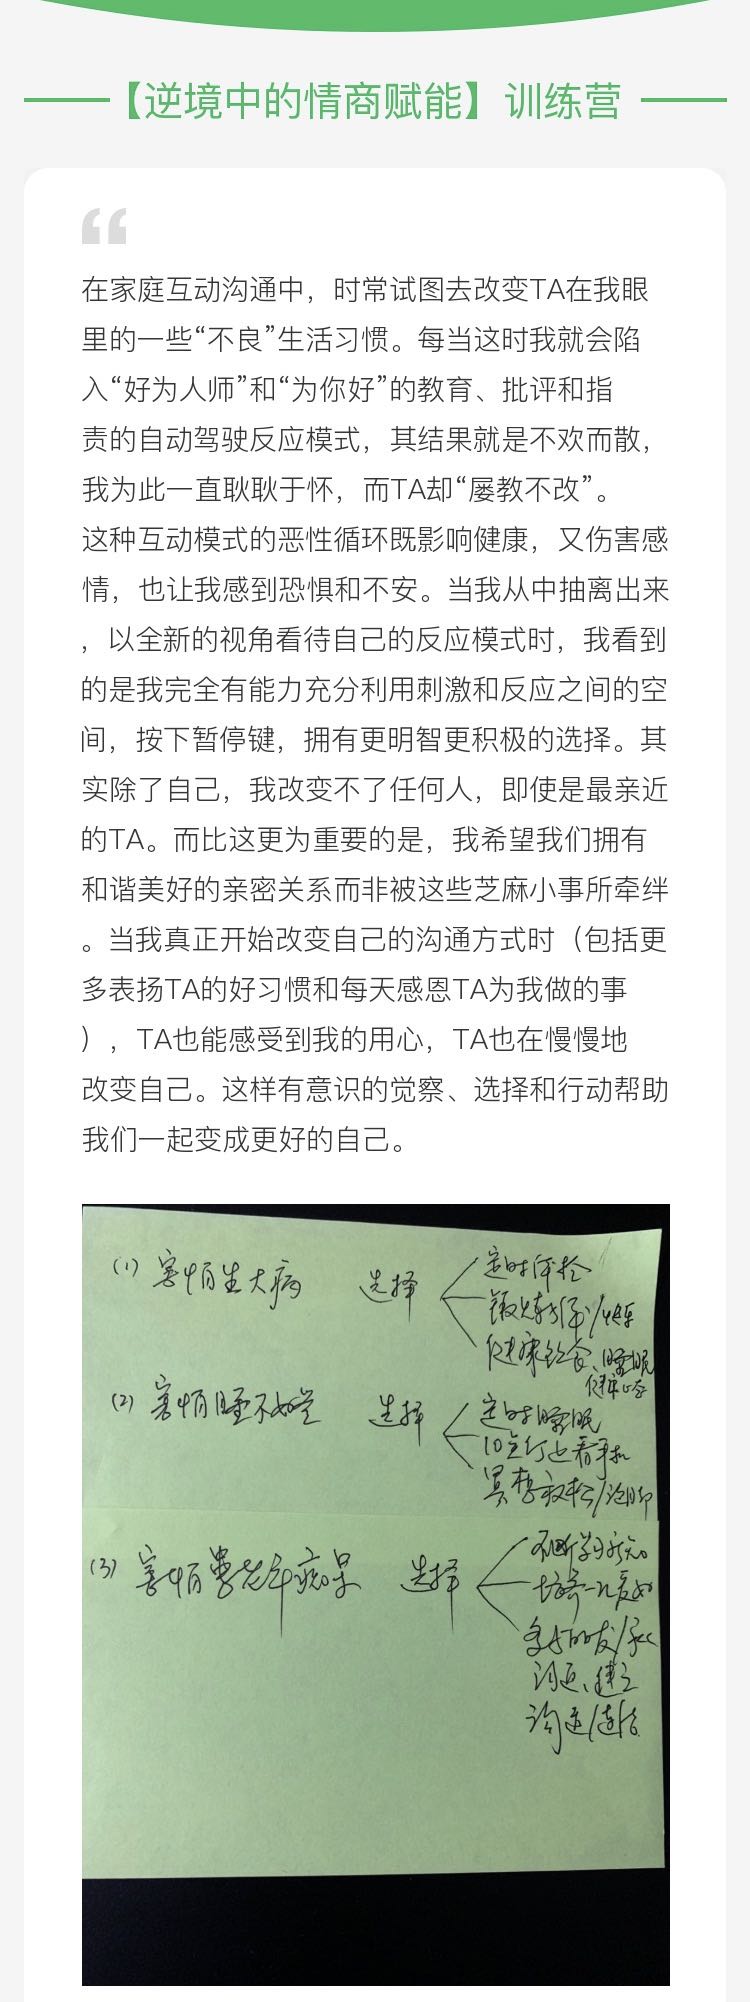 【逆境中的情商赋能】训练营
在家庭互动沟通中，时常试图去改变TA在我眼
里的一些“不良”生活习惯。每当这时我就会陷
入“好为人师”和“为你好”的教育、批评和指
责的自动驾驶反应模式，其结果就是不欢而散，
我为此一直耿耿于怀，而TA却“屡教不改”。
这种互动模式的恶性循环既影响健康，又伤害感
情，也让我感到恐惧和不安。当我从中抽离出来
，以全新的视角看待自己的反应模式时，我看到
的是我完全有能力充分利用刺激和反应之间的空
间，按下暂停键，拥有更明智更积极的选择。其
实除了自己，我改变不了任何人，即使是最亲近
的TA。而比这更为重要的是，我希望我们拥有
和谐美好的亲密关系而非被这些芝麻小事所牵绊
。当我真正开始改变自己的沟通方式时（包括更
多表扬TA的好习惯和每天感恩TA为我做的事
），TA也能感受到我的用心，TA也在慢慢地
改变自己。这样有意识的觉察、选择和行动帮助
我们一起变成更好的自己。
(1) 害怕生大病 选择
定时体检
锻炼身体/
健康饮食、睡眠
健康心态
(2) 害怕睡不好觉 选择
定时睡眠
10点后不看手机
冥想放松/泡脚
(3) 害怕患老年痴呆 选择
不断学习新知
培养一儿爱好
多与朋友/家人
沟通、建立
沟通/连结